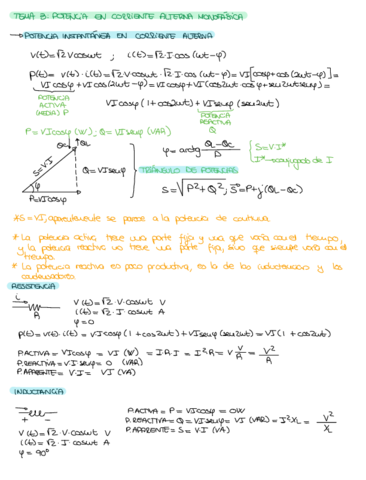 TEMA 3: POTENCIA EN CORRIENTE ALTERNA MONOFÁSICA
→ POTENCIA INSTANTÁNEA EN CORRIENTE ALTERNA
v(t)=√2 V cosωt ; i(t)=√2·I cos (ωt-φ)
p(t)= v(t)·i(t)=√2 V·cosωt·√2 I·cos (ωt-φ)=VI[cosφ+cos(2ωt-φ)]=
VI cosφ+VI cos(2ωt-φ)=VI cosφ+VI(cos2ωt cosφ+sen2ωt senφ)=
POTENCIA ACTIVA (MEDIA) P
VI cosφ (1+cos2ωt)+VI senφ (sen2ωt)
POTENCIA REACTIVA Q
P=VI cosφ (W) ; Q=VI senφ (VAR)
QC
QL
S=V·I
Q=VI senφ
φ
P=VI cosφ
φ=arctg (QL-QC)/P
S=V·I*
I*→conjugado de I
TRIÁNGULO DE POTENCIAS
S=√(P²+Q²) ; S=P+j(QL-QC)
*S=VI, aparentemente se parece a la potencia de continua
* La potencia activa tiene una parte fija y una que varía con el tiempo,
y la potencia reactiva no tiene una parte fija, sino que siempre varía con el
tiempo
* La potencia reactiva es poco productiva, es la de las inductancias y los
condensadores
RESISTENCIA
i
R
v(t)=√2·V·cosωt V
i(t)=√2·I cosωt A
φ=0
p(t)=v(t)·i(t)=VI cosφ(1+cos2ωt)+VI senφ(sen2ωt)=VI(1+cos2ωt)
P.ACTIVA=VI cosφ=VI (W) = I·R·I = I²R=V V/R = V²/R
P.REACTIVA=VI senφ=0 (VAR)
P.APARENTE=V·I= VI (VA)
INDUCTANCIA
+ -
v(t)=√2·V·cosωt V
i(t)=√2·I·cosωt A
φ=90°
P.ACTIVA=P=VI cosφ=0W
P.REACTIVA=Q=VI senφ=VI (VAR)=I²XL= V²/XL
P.APARENTE=S=V·I (VA)